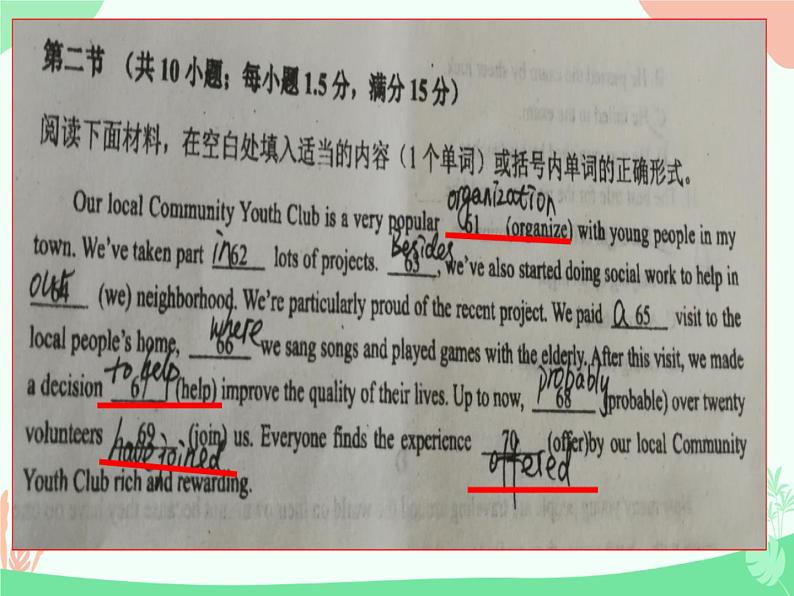 第二节 (共10小题；每小题1.5分，满分15分)
阅读下面材料，在空白处填入适当的内容（1个单词）或括号内单词的正确形式。
organization
Our local Community Youth Club is a very popular 61 (organize) with young people in my
town. We've taken part in 62 lots of projects. Besides 63, we've also started doing social work to help in
our 64 (we) neighborhood. We're particularly proud of the recent project. We paid a 65 visit to the
local people's home, where 66 we sang songs and played games with the elderly. After this visit, we made
a decision to help 67 (help) improve the quality of their lives. Up to now, probably 68 (probable) over twenty
volunteers 69 (join) us. Everyone finds the experience 70 (offer)by our local Community
have joined offered
Youth Club rich and rewarding.